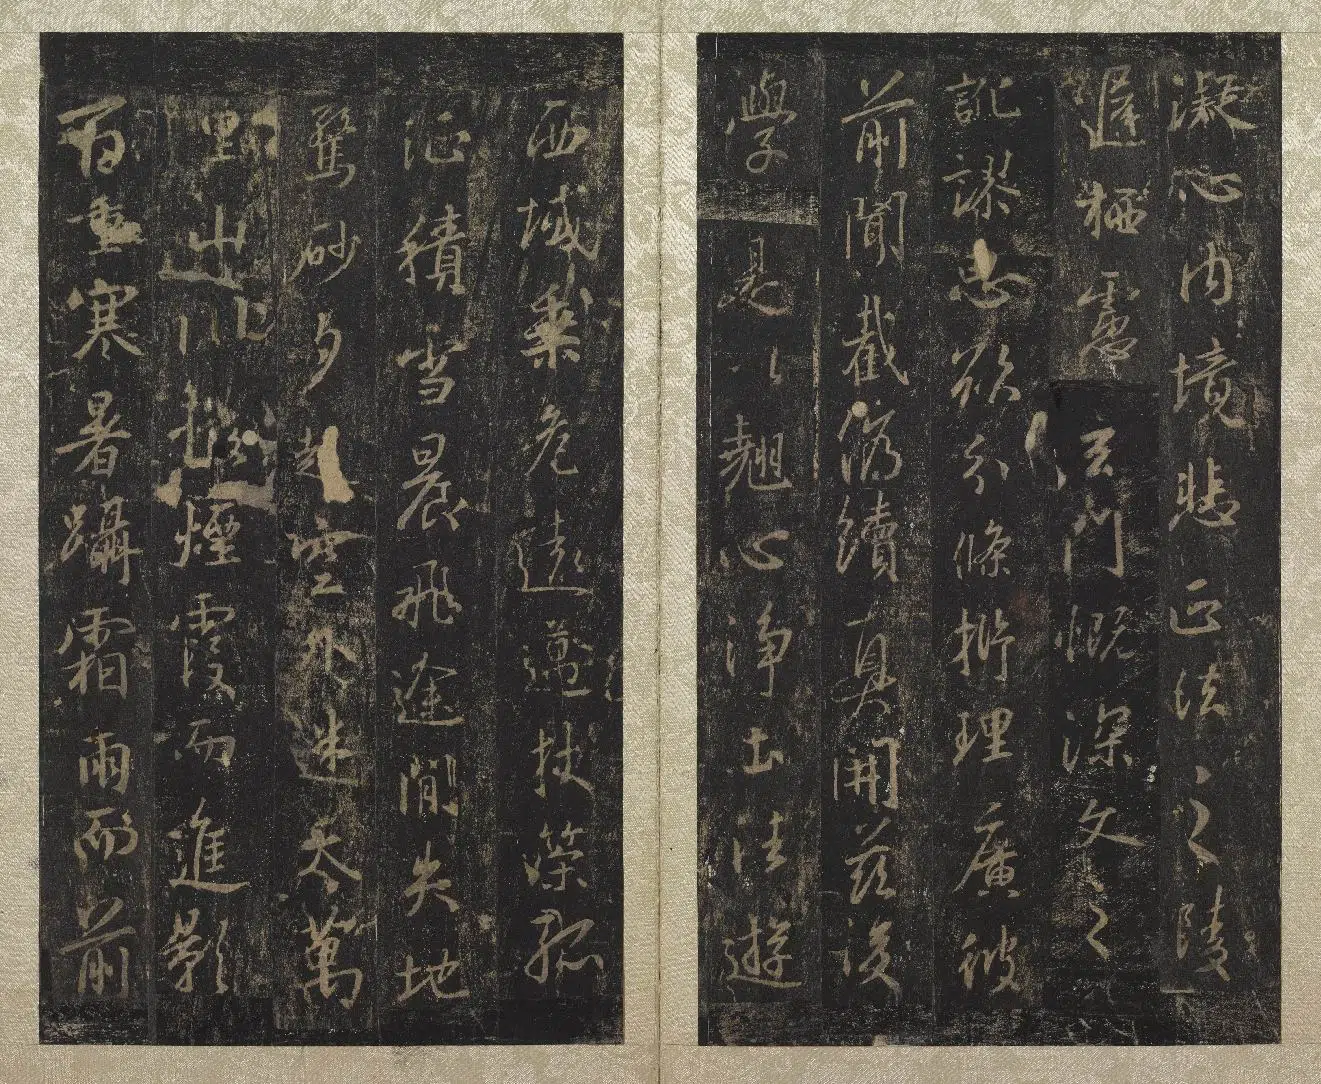 凝心内境悲正法之陵
遲栖慮玄門慨深文之
訛謬思欲分條析理廣彼
前聞截偽續真開茲後
學是以翹心淨土法遊
西域乘危遠邁杖策孤
征積雪晨飛途閒失地
驚砂夕起空外迷天萬
里山川撥煙霞而進影
百重寒暑躡霜雨而前